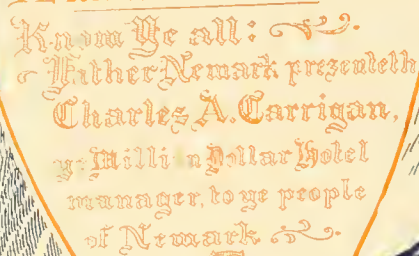 Know Ye all:
Father Newark presenteth
Charles A. Carrigan,
ye Million Dollar Hotel
manager, to ye people
of Newark